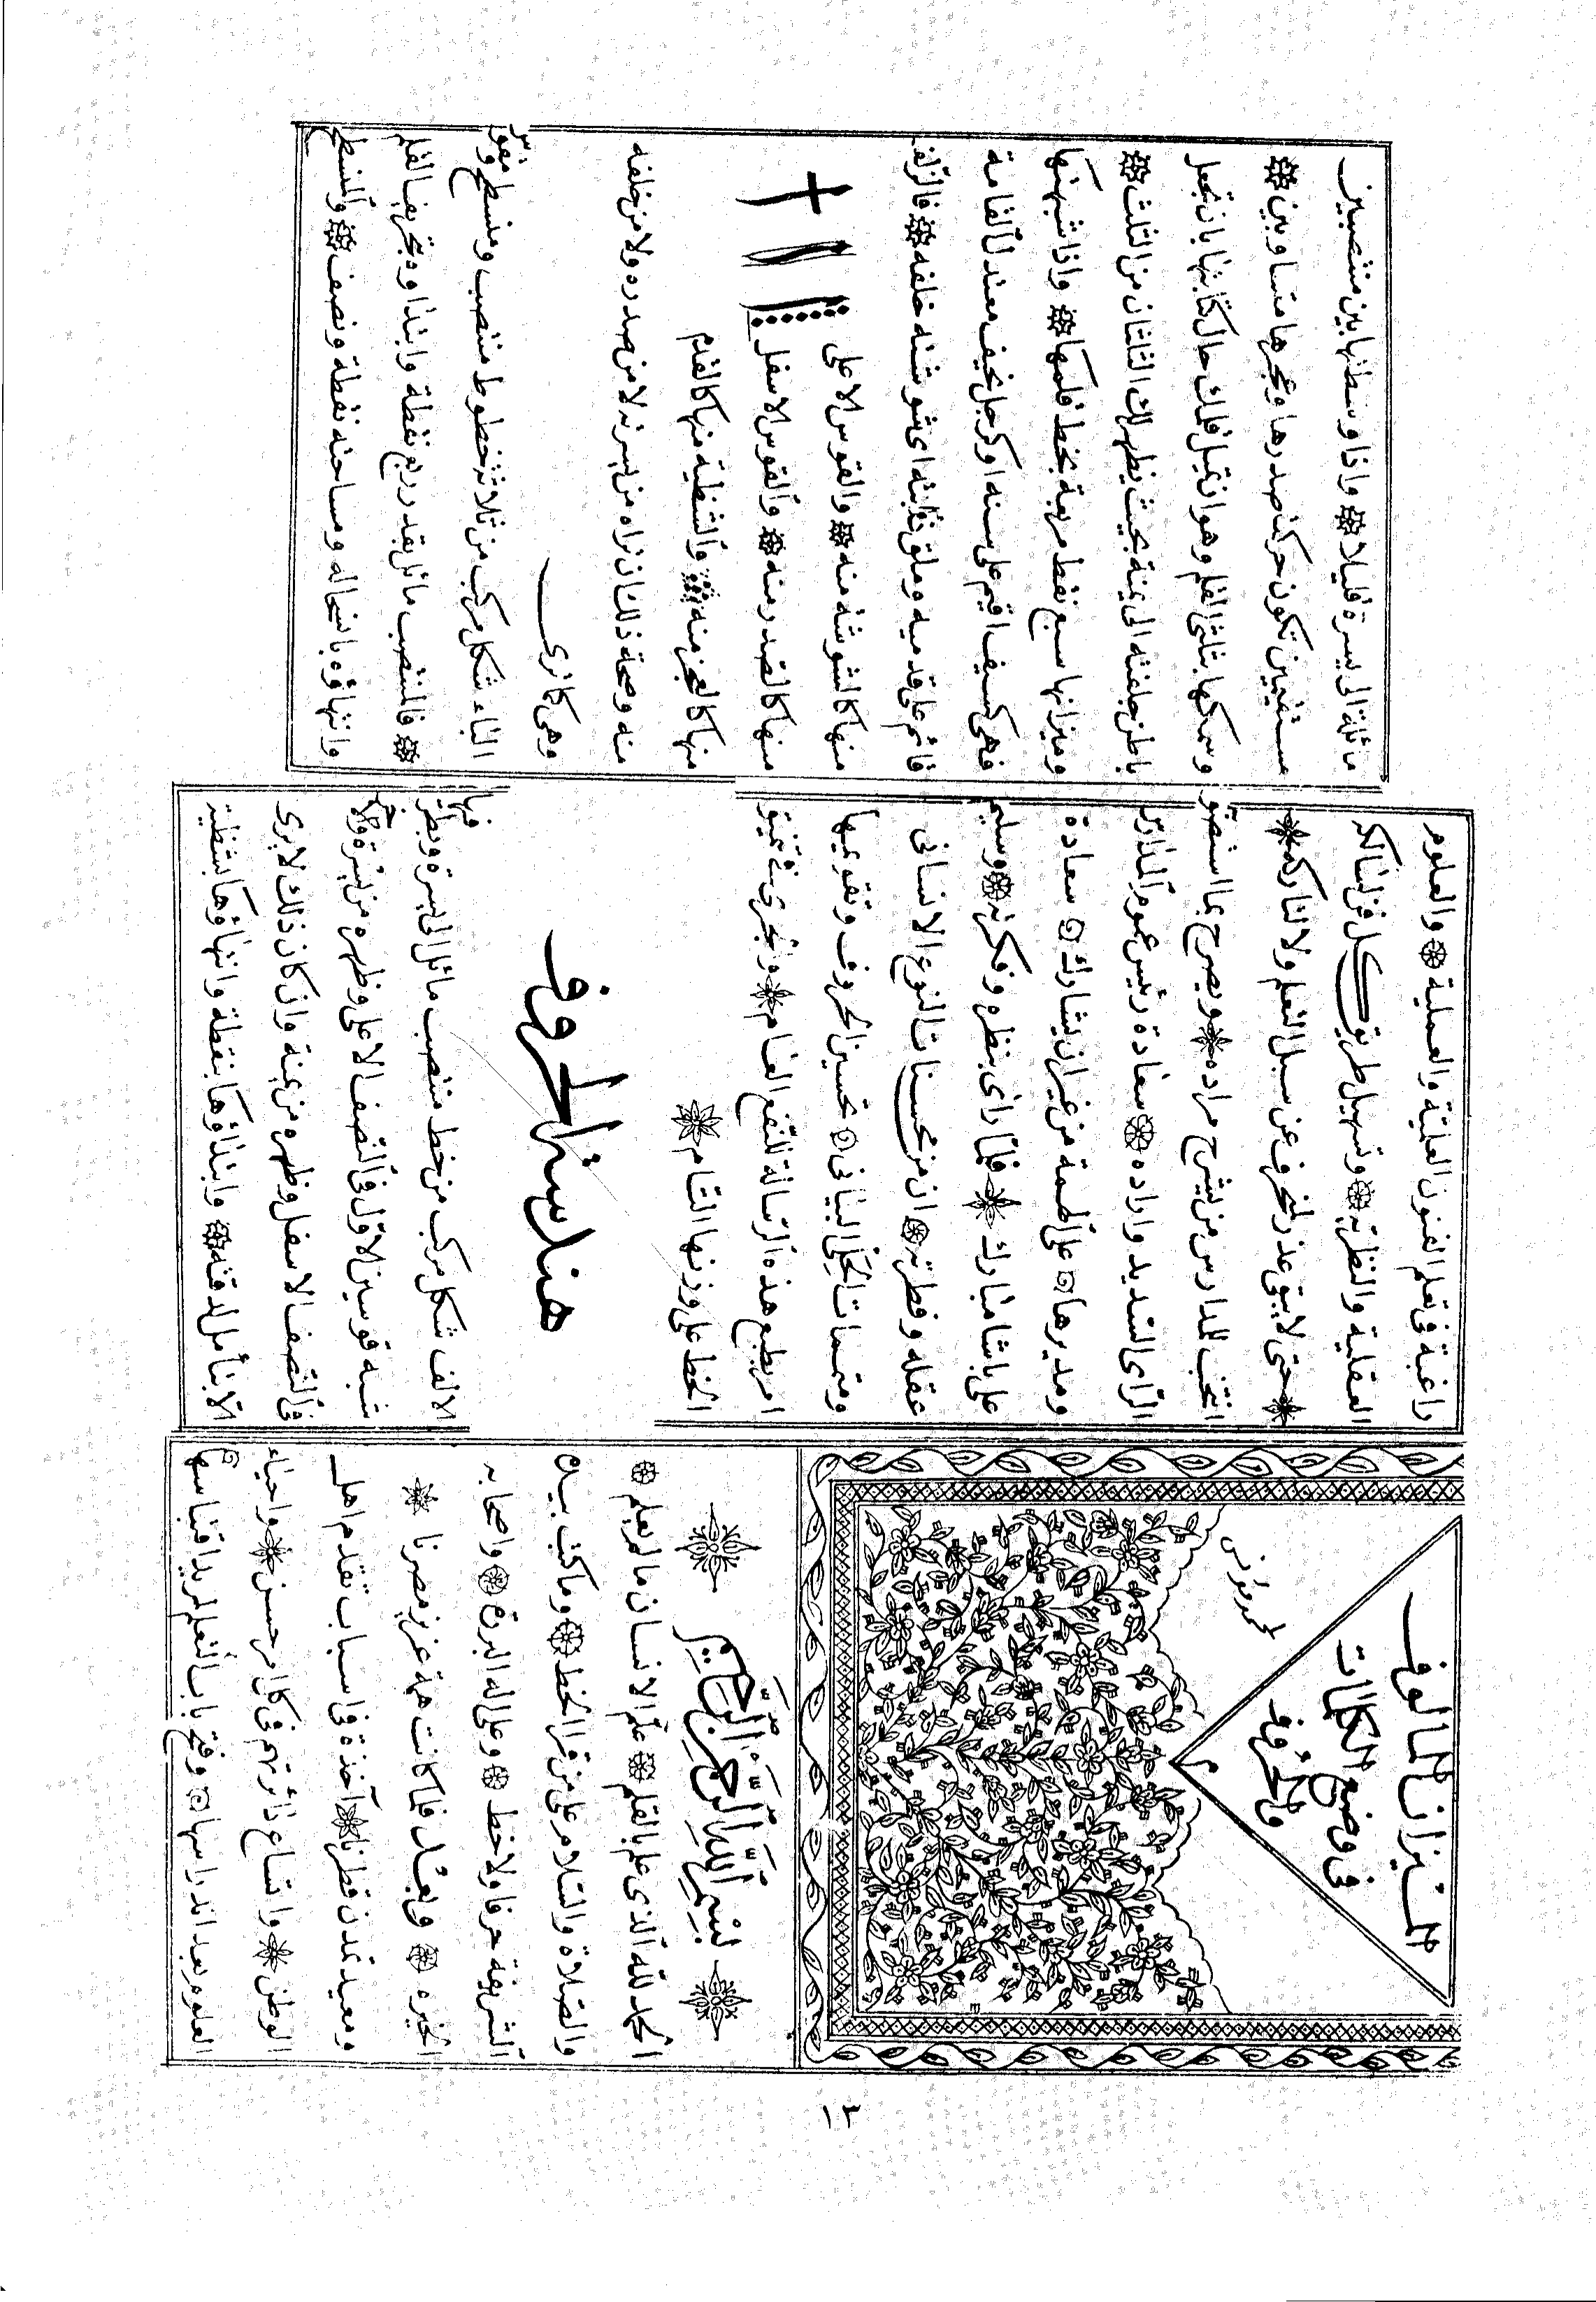 الميزان المألوف
في وضع الكلمات
والحروف
م
محمد مؤنس
بسم الله الرحمن الرحيم
الحمد لله الذى علم بالقلم علم الانسان ما لم يعلم
والصلاة والسلام على من قرا الخط وما كتب بيده
الشريفة حرفا ولا خط وعلى اله البررة واصحابه
الخيره وبعد فلما كانت همة عزيز مصرنا
ومعيد تمدن قطرنا آخذة فى اسباب تقدم اهل
الوطن واتساع دائرتهم فى كل امر حسن واحياء
العلوم بعد اندراسها وفتح باب التعلم لمريد اقتباسها
راغبة فى تعلم الفنون العلمية والعملية والعلوم
العقلية والنظرية وتسهيل طريق كل فن لسالكه
حتى لا يبقى عذر لمنحرف عن سبل التعلم ولا لتاركه
انتخب للمدارس من يشرح مراده ويصرح بما استصو
الراى السديد واراده سعادة رئيس عموم المدارس
ومديرها على اهمة من غير ان يشارك سعادة
على باشا مبارك فلما راى بنظره وفكرته وسليم
عقله وفطرته ان من محسنات النوع الانسانى
ومتممات الحلى البيانى تحسين الحروف وتقويمها
امر بطبع هذه الرسالة للنفع العام ولجرى فى تنميق
الخط على وزنها التام
هندسة الحروف
الالف شكل مركب من خط منتصب مائل الى يسرة وبطن فيها
شبه قوسين الاول فى النصف الاعلى وظهره من يسرة والآخر
فى النصف الاسفل وظهره من يمنة وان كان ذلك لا يرى
الا بتأمل لدقته وابتداؤها بنقطة وانتهاؤها بشظية
مائلة الى يسرة قليلا واذا وسطتها بين منتصبين
مستقيمين تكون حركة صدرها وعجزها متساويين
وسمكها بثلثى القلم وهو ان تميل قلمك حال كتابتها بان تجعل
باطن جلفته الى يمنة بحيث يظهر لك الثلثان من الثلث
وميزانها سبع نقط مربعة بخط قلمها واذا شبهتها
فهى كسيف اقيم على سنه او كرجل نحيف معتدل القامة
قائم على قدميه وملق ذؤابته اى شوشته خلفه فالزلف
منها كالشوشة منه والقوس الاعلى
منها كالصدر منه والقوس الاسفل
منها كالعجز منه والشظية منها كالقدم
منه وصحة ذلك ان تراه من يسرته لا من صدره ولا من خلفه
وهى كما ترى
الباء شكل مركب من ثلاثة خطوط منتصب ومنسطح ومقوس
فالمنتصب مائل بقدر ربع نقطة وابتداوه بتحريف القلم
وانتهاؤه باتخاله ومساحته نقطة ونصف والمنسطح